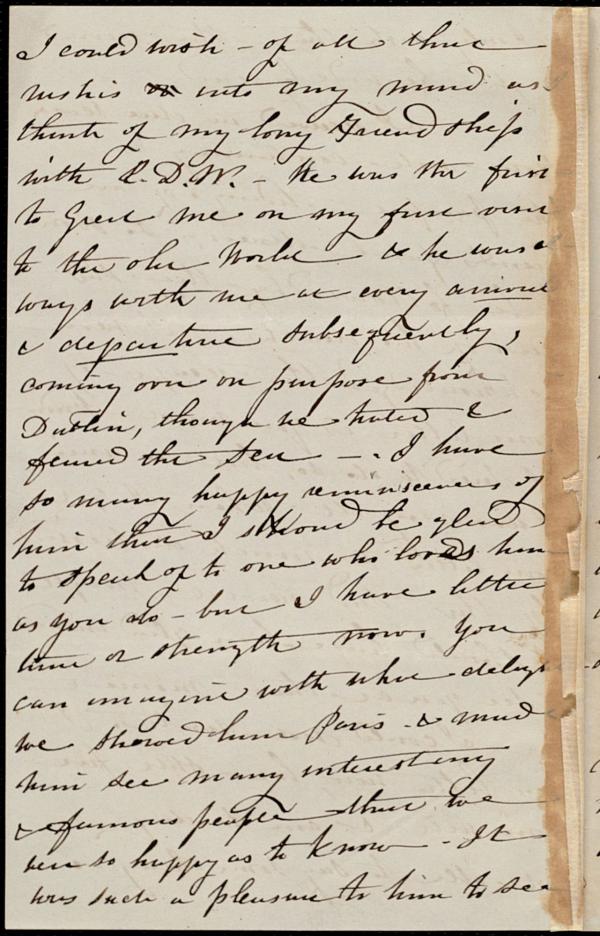 I could wish - of all that
rushes into my mind as
think of my long Friendship
with R.D.W. - He was the first
to Greet me on my first visit
to the old World & he was a
ways with me at every arrival
& departure subsequently,
coming over on purpose from
Dublin, though he hated &
feared the sea - . I have
so many happy reminiscences of
him that I should be glad
to speak of to one who loves him
as you do - but I have little
time or strength now. You
can imagine with what delight
we showed him Paris - & made
him see many interesting
& famous people that we
were so happy as to know - It
was such a pleasure to him to see